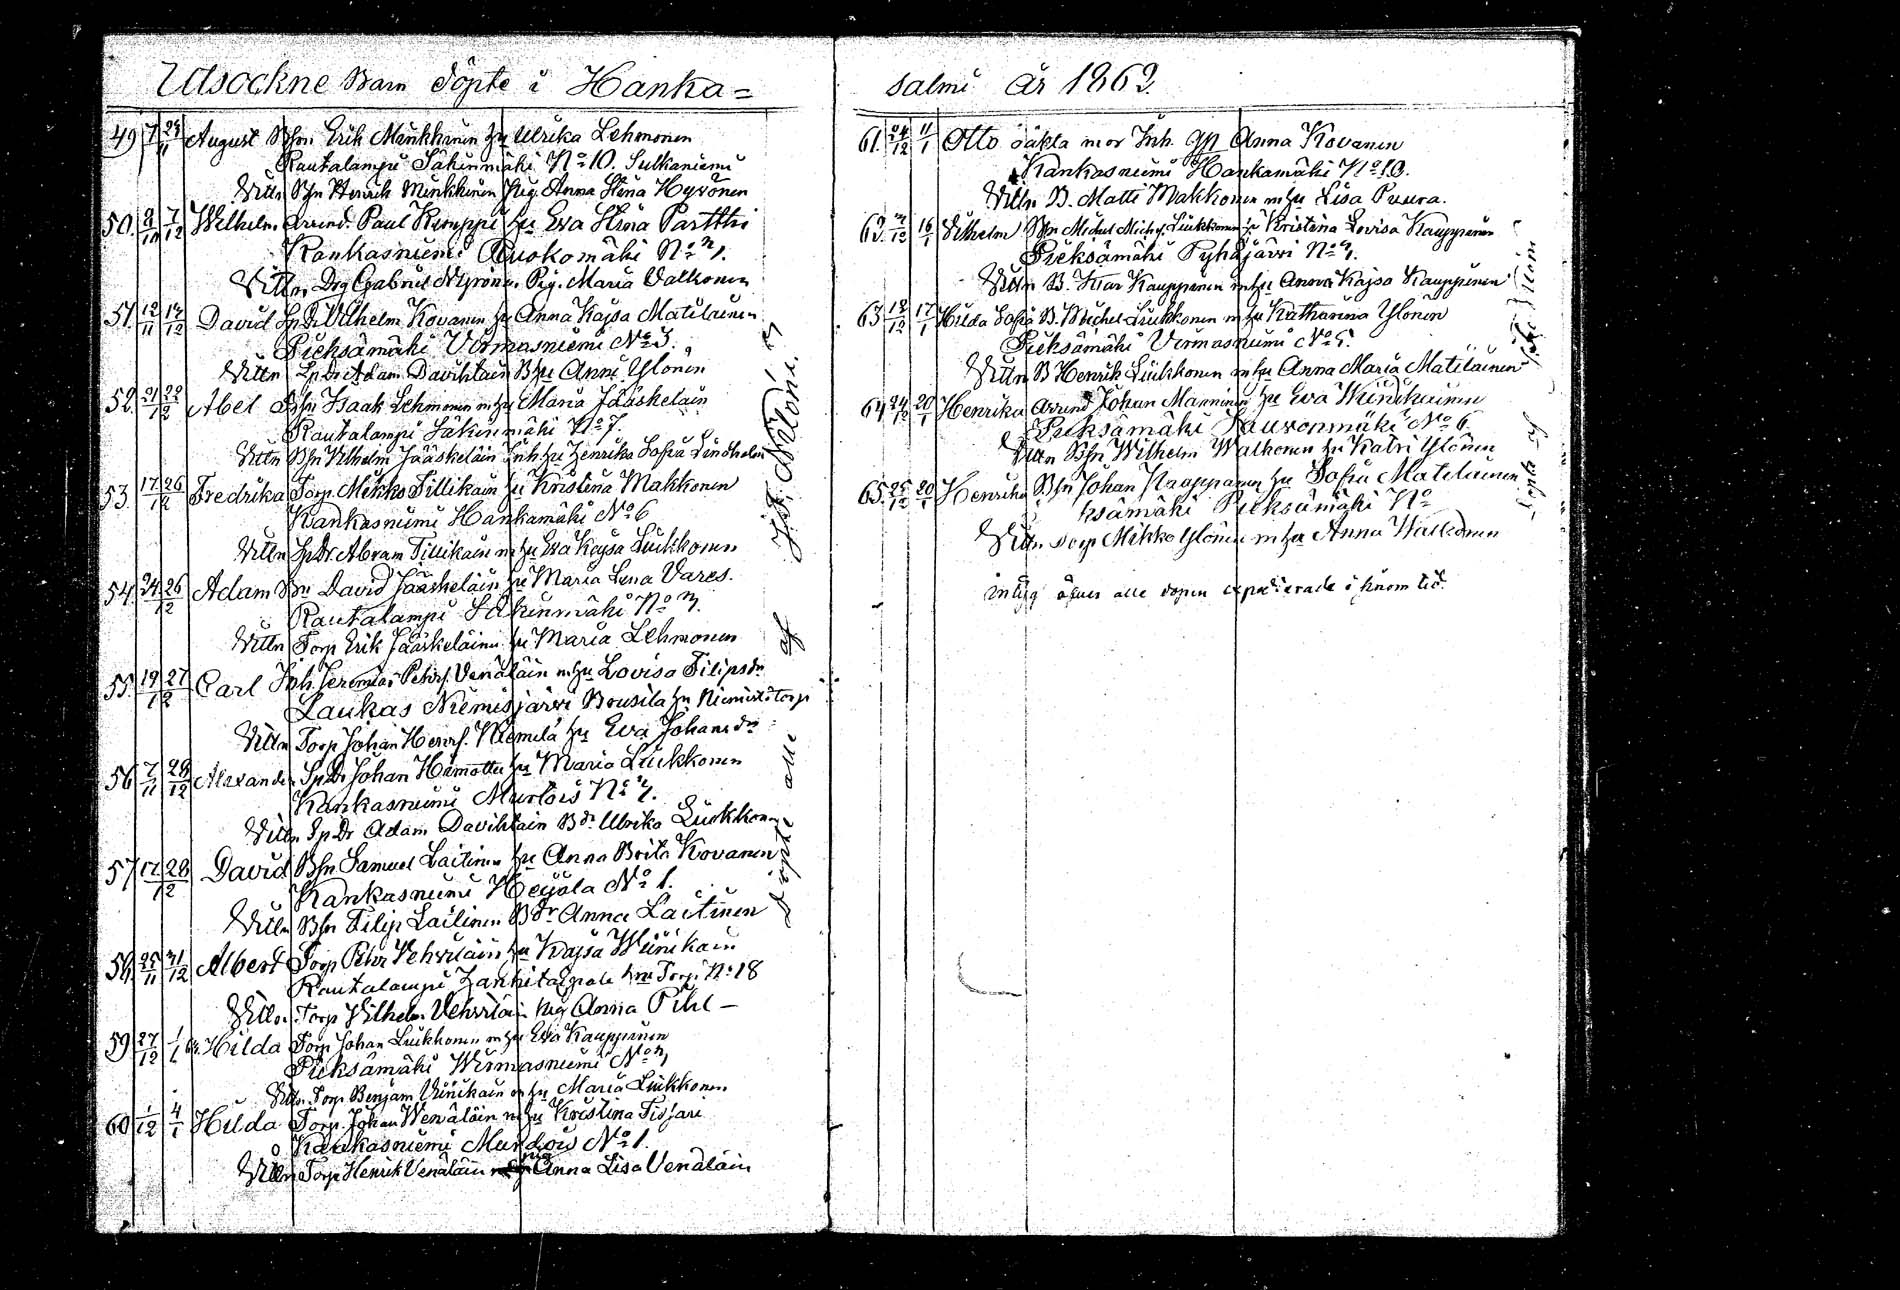 Utsockne Barn Döpte i Hanka=
49 7/11 24/11 August Bhn Erik Minkkinen hu Ulrika Lehmonen
Rautalampi Säkinmäki No 10. Sulkaniemi
Vittn Bhn Henrik Minkkinen Pig. Anna Stina Hyvönen
50. 8/10 7/12 Wilhelm Arrend. Paul Kemppi hu Eva Stina Partthi
Kankasniemi Ruokomäki No 7.
Vittn Drg Gabriel Nyrönen Pig. Maria Valkonen
51 12/11 14/12 David Sp Dr Vilhelm Kovanen hu Anna Kajsa Matilainen
Pieksämäki Virmasniemi No 3.
Vittn Sp Dr Adam Davihlain B hu Anni Ylönin
52. 21/12 22/12 Abel Bhn Isaak Lehmonen m hu Maria Jääskeläin
Rautalampi Säkinmäki No 7.
Vittn Bhn Vilhelm Jääskeläin Inh. hu Henrika Sofia Lindholm
53. 17/12 26/12 Fredrika Torp. Mikko Tillikain hu Kristina Makkonen
Kankasniemi Hankamäki No 6
Vittn Sp Dr Abram Tillikain m hu Eva Kajsa Liukkonen
54. 24/12 26/12 Adam Bhn David Jääskeläin hu Maria Lena Vares.
Rautalampi Säkinmäki No 3.
Vittn Torp Erik Jääskeläinen hu Maria Lehmonen
55. 19/12 27/12 Carl Inh. Jeremias Petersf. Venäläin m hu Lovisa Filipsdr
Laukas Niemisjärvi
Vittn Torp Johan Henrs. Niemilä hu Eva Johansdr
56 7/11 28/12 Alexander Sp Dr Johan Himottu hu Maria Liukkonen
Kankasniemi Murtois No 7.
Vittn Sp Dr Adam Davihlain B dr Ulrika Liukkonen
57 17/12 28/12 David Bhn Samuel Laitinen hu Anna Brita Kovanen
Kankasniemi No 1.
Vittn Bhn Filip Laitinen B dr Anna Laitinen
58. 25/11 31/12 Albert Torp Petter Vehviläin hu Kajsa Wiinikain
Rautalampi Torp No 18
Vittn Torp Vilhelm Vehviläin Pig Anna Pihl –
59 27/12 1/1 Hilda Torp Johan Liukkonen m hu Eva Kauppinen
Pieksämäki Wirmasniemi No 3
Vittn Torp Benjam Viinikain m hu Maria Liukkonen
60 1/12 4/1 Hilda Torp. Johan Wenäläin m hu Kristina Tissari
Kankasniemi Murtois No 1.
Vittn Torp Henrik Venäläin Pig Anna Lisa Venäläin
Döpte alle af
salmi År 1862.
61. 24/12 11/1 Otto oäkta mor Inh. Anna Kovanen
Kankasniemi Hankamäki No 10.
Vittn B. Matti Makkonen m hu Lisa Puura.
62. 3/12 16/1 Vilhelm Bhn Michel Michs. Liukkonen hu Kristina Lovisa Kauppinen
Pieksämäki Pyhäjärvi No 7.
Vittn B. Ivar Kauppinen m hu Anna Kajsa Kauppinen
63. 12/12 17/1 Hilda Sofia B. Michel Liukkonen m hu Katharina Ylönin
Pieksämäki Virmasniemi No 5.
Vittn B Henrik Liukkonen m hu Anna Maria Matilainen
64 24/12 20/1 Henrika Arrend Johan Manninen hu Eva Wiinikainen
Pieksämäki No 6
Vittn Bhn Wilhelm Walkonen hu Katri Ylönen
65. 25/12 20/1 Henrika Bhn Johan Kauppinen hu Sofia Matilainen
ksämäki Pieksämäki No
Vittn Torp Mikko Ylönin m hu Anna Walkonen
alle dopen expedierade
Döpte af